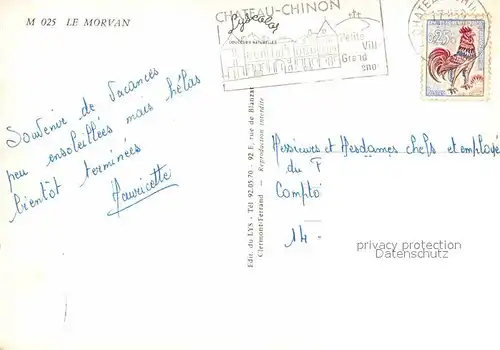 M 025 LE MORVAN
CHATEAU-CHINON
Lyscolor
COULEURS NATURELLES
Petite Vill
Grand
CHATEAU-CHIN
0,25
Souvenir de vacances
peu ensoleillées mais hélas
bientôt terminées
Mauricette
Edit. du LYS - Tél 92.05.70 - 92 F, rue de Blanzat
Clermont-Ferrand - Reproduction interdite
Messieurs et Mesdames chefs et employe
du F
Compto
14 -
privacy protection
Datenschutz